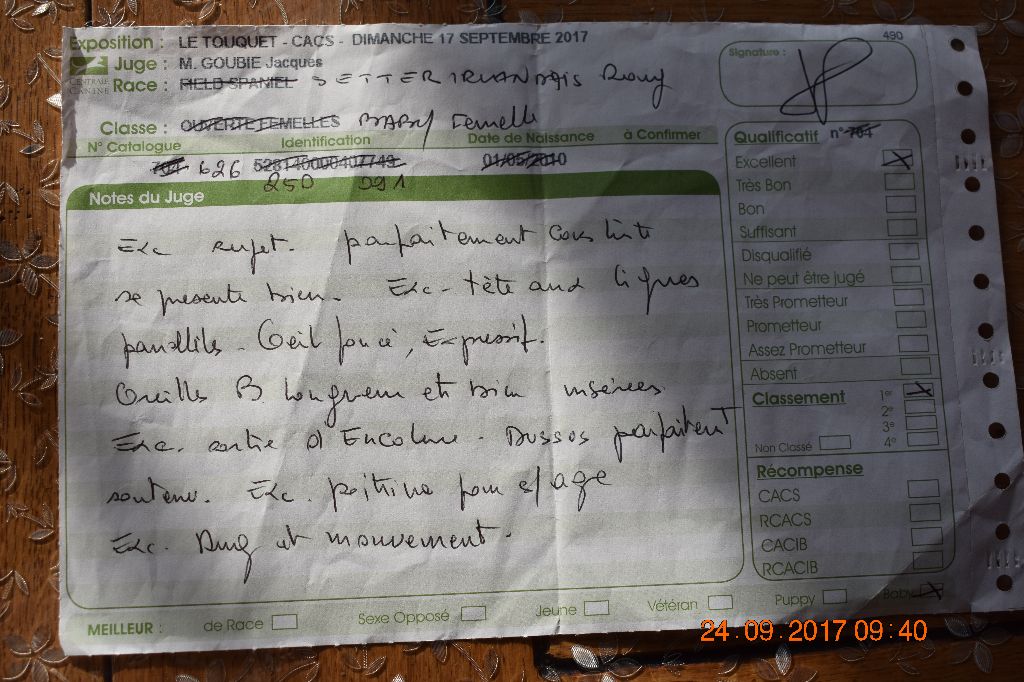 490
Exposition : LE TOUQUET - CACS - DIMANCHE 17 SEPTEMBRE 2017
Signature :
CENTRALE CANINE
Juge : M. GOUBIE Jacques
Race : FIELD SPANIEL SETTER IRLANDAIS Roug
Classe : OUVERTE FEMELLES BABY Femelle
N° Catalogue Identification Date de Naissance à Confirmer
704 626 528140000407743 01/05/2010
250 591
Notes du Juge
Exc sujet. parfaitement Construite
se presente bien. Exc - tête aux lignes
parallèles - Oeil foncé, Expressif.
Oreilles B. longueur et bien insérées
Exc. sortie d'Encolure - Dessus parfaitent
soutenu. Exc. poitrine pour s/ age
Exc. et mouvement.
Qualificatif n° 704
Excellent
Très Bon
Bon
Suffisant
Disqualifié
Ne peut être jugé
Très Prometteur
Prometteur
Assez Prometteur
Absent
Classement 1er
2e
3e
Non Classé 4e
Récompense
CACS
RCACS
CACIB
RCACIB
MEILLEUR : de Race Sexe Opposé Jeune Vétéran Puppy Baby
24.09.2017 09:40